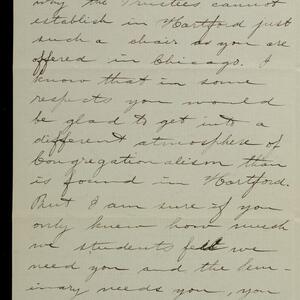 why the Trustees cannot
establish in Hartford just
such a chair as you are
offered in Chicago. I
know that in some
respects you would
be glad to get into a
different atmosphere of
Congregationalism than
is found in Hartford.
But I am sure if you
only knew how much
we students felt we
need you and the Sem-
inary needs you, you